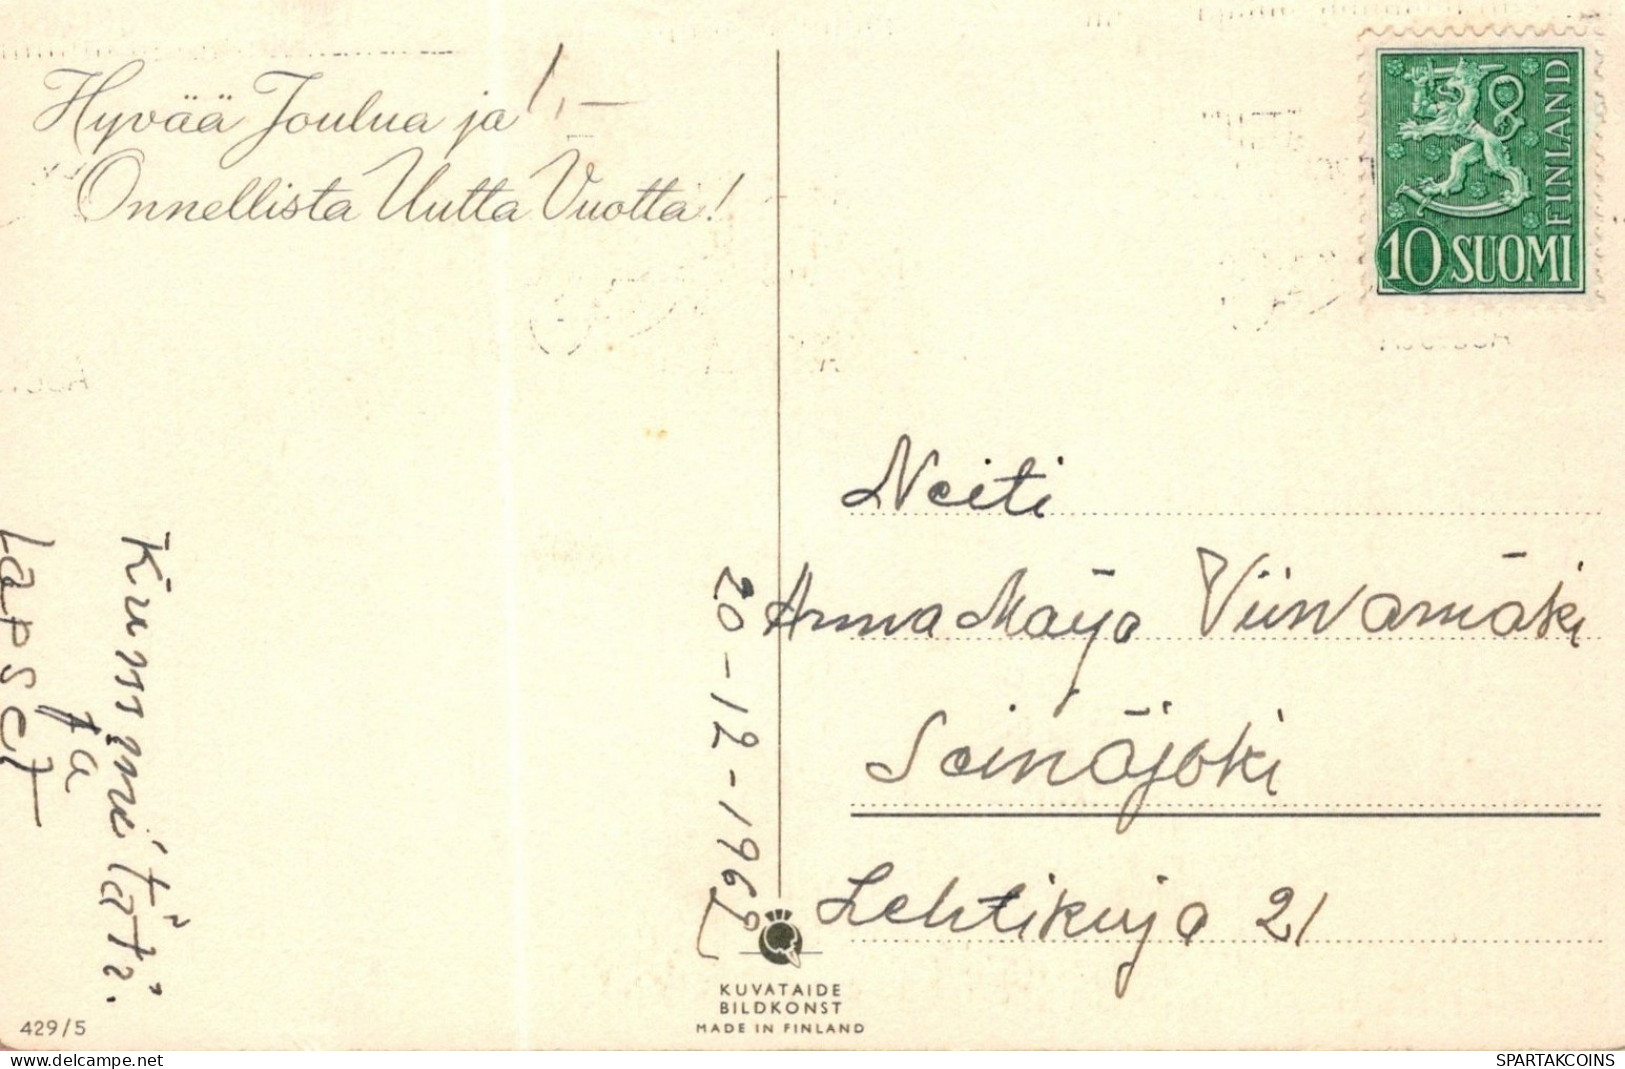 Hyvää Joulua ja
Onnellista Uutta Vuotta!
1,-
FINLAND
10 SUOMI
Neiti
Anna Maija Viinamäki
Seinäjoki
Lehtikuja 21
20-12-1962
Kummitäti
ja
Lapset
KUVATAIDE
BILDKONST
MADE IN FINLAND
429/5
delcampe.net
SPARTAKCOINS